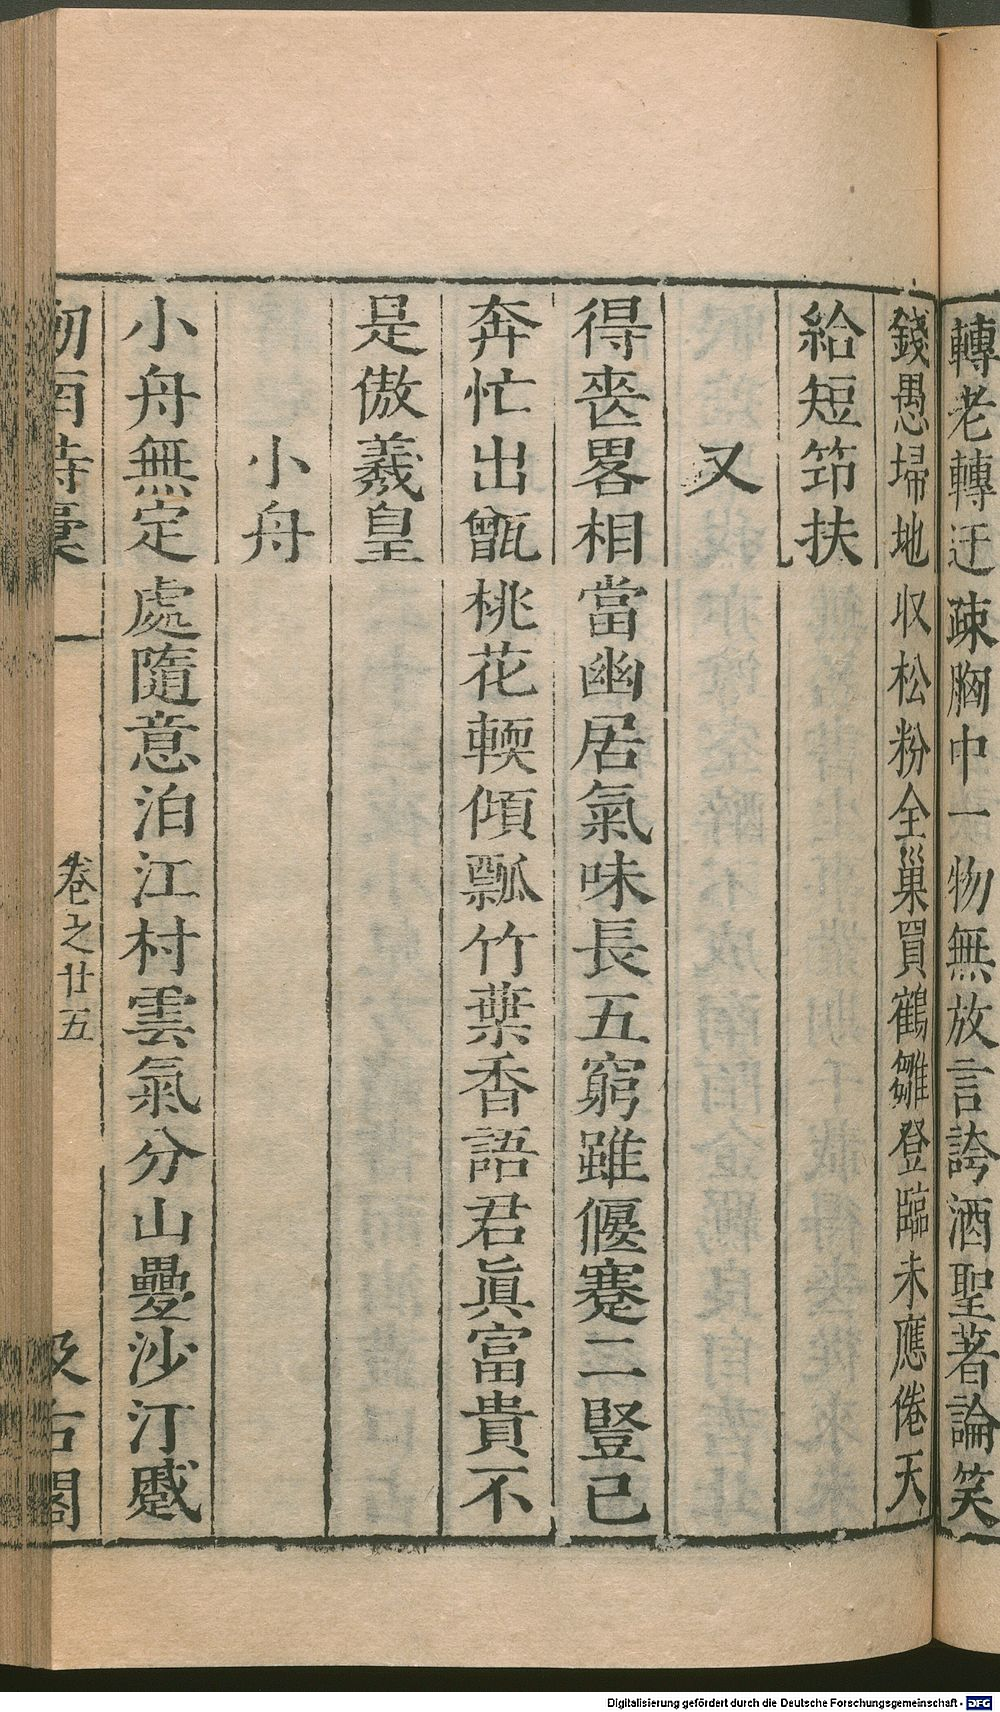 轉老轉迂疎胸中一物無放言誇酒聖著論笑
錢愚埽地収松粉全巢買鶴雛登臨未應倦天
給短笻扶
又
得喪畧相當幽居氣味長五窮雖偃蹇二豎已
奔忙出甑桃花輭傾瓢竹葉香語君眞富貴不
是傲羲皇
小舟
小舟無定處隨意泊江村雲氣分山疊沙汀蹙
劒南詩稾
卷之廿五
汲古閣
Digitalisierung gefördert durch die Deutsche Forschungsgemeinschaft - DFG